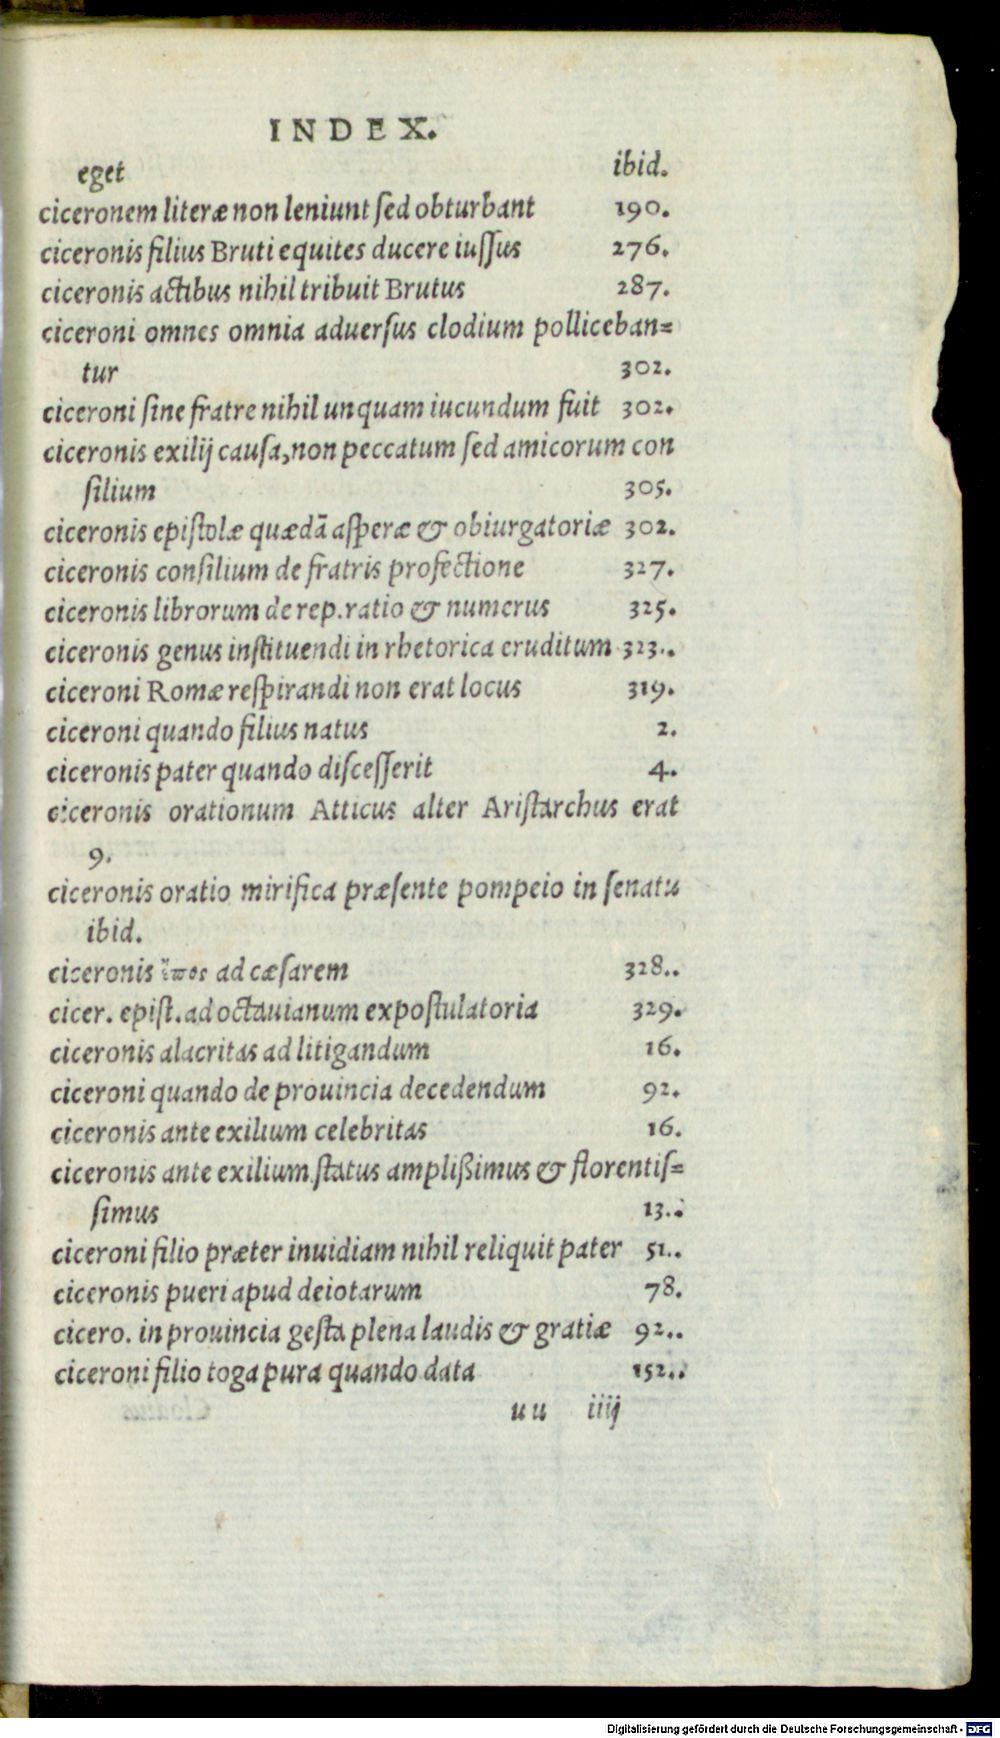 INDEX.
eget ibid.
ciceronem literæ non leniunt ſed obturbant 190.
ciceronis filius Bruti equites ducere iuſſus 276.
ciceronis actibus nihil tribuit Brutus 287.
ciceroni omnes omnia aduerſus clodium polliceban=
tur 302.
ciceroni ſine fratre nihil unquam iucundum fuit 302.
ciceronis exilij cauſa, non peccatum ſed amicorum con
ſilium 305.
ciceronis epiſtolæ quædā aſperæ & obiurgatoriæ 302.
ciceronis conſilium de fratris profectione 327.
ciceronis librorum de rep. ratio & numerus 325.
ciceronis genus inſtituendi in rhetorica eruditum 323..
ciceroni Romæ reſpirandi non erat locus 319.
ciceroni quando filius natus 2.
ciceronis pater quando diſceſſerit 4.
ciceronis orationum Atticus alter Ariſtarchus erat
9.
ciceronis oratio mirifica præſente pompeio in ſenatu
ibid.
ciceronis ἔπος ad cæſarem 328..
cicer. epiſt. ad octauianum expoſtulatoria 329.
ciceronis alacritas ad litigandum 16.
ciceroni quando de prouincia decedendum 92.
ciceronis ante exilium celebritas 16.
ciceronis ante exilium ſtatus amplißimus & florentiſ=
ſimus 13..
ciceroni filio præter inuidiam nihil reliquit pater 51..
ciceronis pueri apud deiotarum 78.
cicero. in prouincia geſta plena laudis & gratiæ 92..
ciceroni filio toga pura quando data 152..
uu iiij
Digitalisierung gefördert durch die Deutsche Forschungsgemeinschaft - DFG